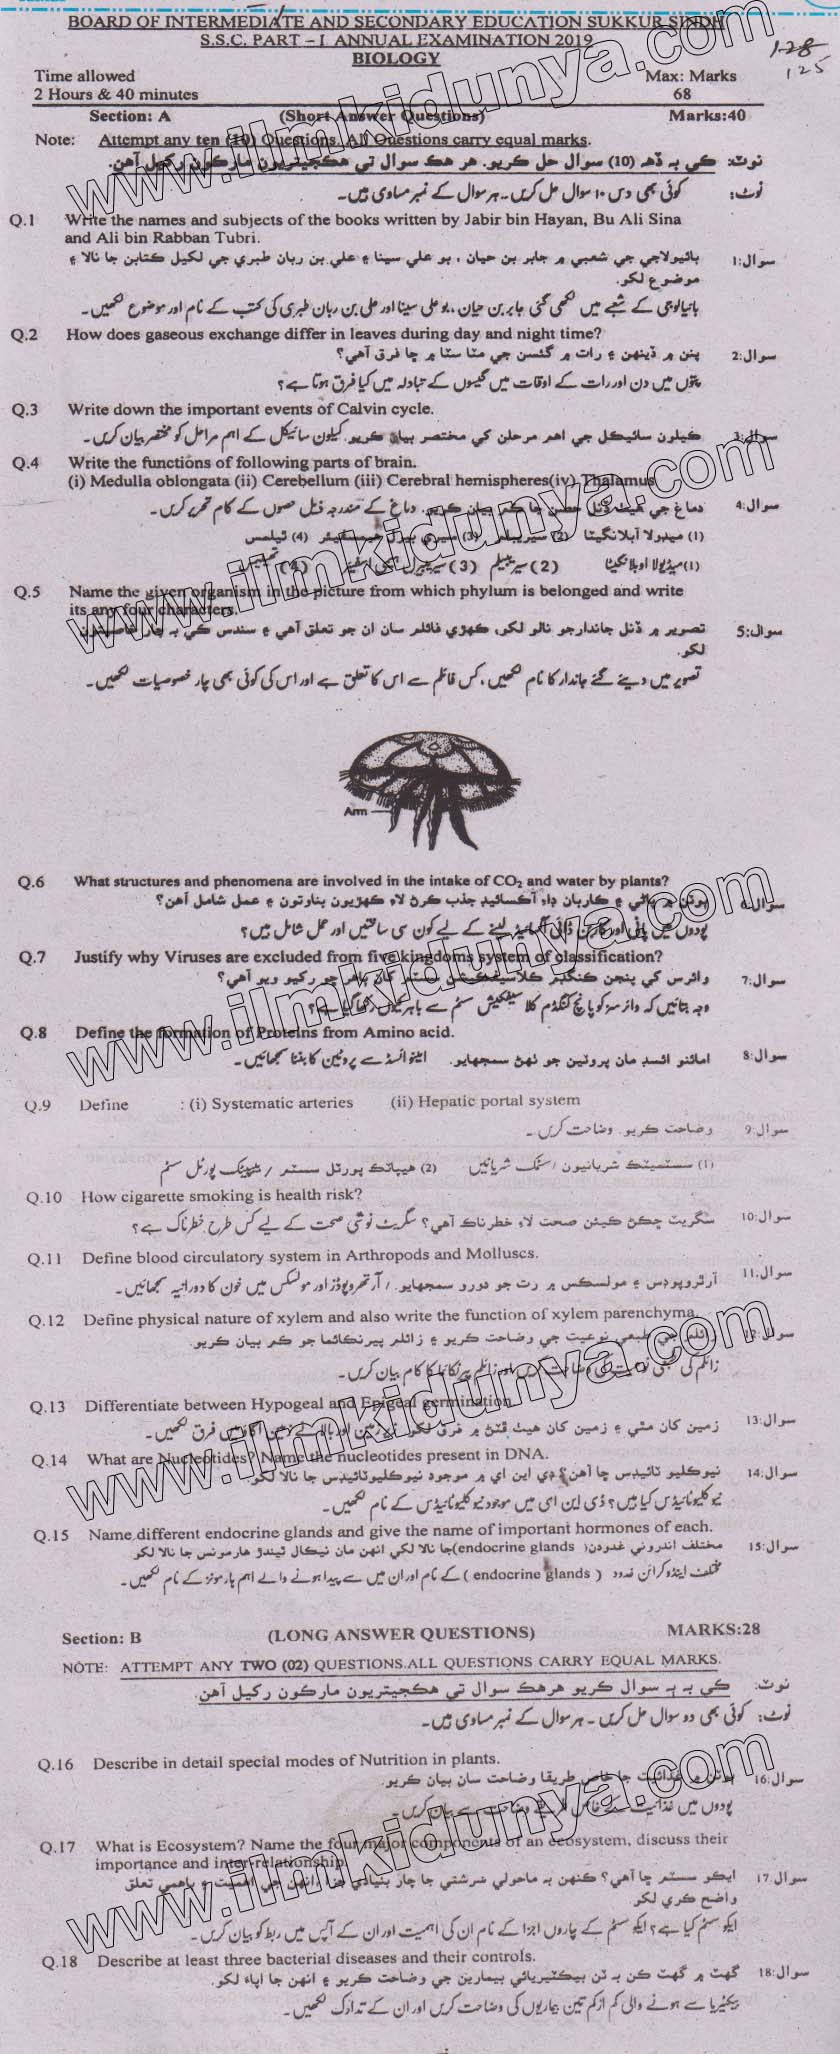 BOARD OF INTERMEDIATE AND SECONDARY EDUCATION SUKKUR SINDH
S.S.C. PART – I ANNUAL EXAMINATION 2019
BIOLOGY
128
125
Time allowed Max: Marks
2 Hours & 40 minutes 68
Section: A (Short Answer Questions) Marks:40
Note: Attempt any ten (10) Questions. All Questions carry equal marks.
نوٽ: ڪي به ڏهه (10) سوال حل ڪريو. هر هڪ سوال تي هڪجيتريون مارڪون رکيل آهن.
نوٹ: کوئی بھی دس ۱۰ سوال حل کریں۔ ہر سوال کے نمبر مساوی ہیں۔
Q.1 Write the names and subjects of the books written by Jabir bin Hayan, Bu Ali Sina
and Ali bin Rabban Tubri.
سوال:1 بائيولاجي جي شعبي ۾ جابر بن حيان ، بو علي سينا ۽ علي بن ربان طبري جي لکيل ڪتابن جا نالا ۽
موضوع لکو.
بائیالوجی کے شعبے میں لکھی گئی جابر بن حیان، بو علی سینا اور علی بن ربان طبری کی کتب کے نام اور موضوع لکھیں۔
Q.2 How does gaseous exchange differ in leaves during day and night time?
سوال:2 پنن ۾ ڏينهن ۽ رات ۾ گئسن جي مٽا سٽا ۾ ڇا فرق آهي؟
پتوں میں دن اور رات کے اوقات میں گیسوں کے تبادلہ میں کیا فرق ہوتا ہے؟
Q.3 Write down the important events of Calvin cycle.
سوال:3 ڪيلون سائيڪل جي اهم مرحلن کي مختصر بيان ڪريو. کیلون سائیکل کے اہم مراحل کو مختصر بیان کریں۔
Q.4 Write the functions of following parts of brain.
(i) Medulla oblongata (ii) Cerebellum (iii) Cerebral hemispheres(iv) Thalamus
سوال:4 دماغ جي هيٺ ڏنل حصن جا ڪم بيان ڪريو. دماغ کے مندرجہ ذیل حصوں کے کام تحریر کریں۔
(1) ميڊولا آبلانگيٽا (2) سيريبلم (3) سيري برل هيمسفيئر (4) ٿيلمس
(1) میڈیولا اوبلانگیٹا (2) سیریبیلم (3) سیریبرل ہیمی اسفیئر (4) تھیلمس
Q.5 Name the given organism in the picture from which phylum is belonged and write
its any four characters.
سوال:5 تصوير ۾ ڏنل جاندار جو نالو لکو، ڪهڙي فائلم سان ان جو تعلق آهي ۽ سندس ڪي به چار خاصيتون
لکو.
تصویر میں دیئے گئے جاندار کا نام لکھیں، کس فائلم سے اس کا تعلق ہے اور اس کی کوئی بھی چار خصوصیات لکھیں۔
Arm
Q.6 What structures and phenomena are involved in the intake of CO₂ and water by plants?
سوال:6 ٻوٽن ۾ پاڻي ۽ ڪاربان ڊاءِ آڪسائيڊ جذب ڪرڻ لاءِ ڪهڙيون بناوتون ۽ عمل شامل آهن؟
پودوں میں پانی اور کاربن ڈائی آکسائیڈ لینے کے لیے کون سی ساختیں اور عمل شامل ہیں؟
Q.7 Justify why Viruses are excluded from five kingdoms system of classification?
سوال:7 وائرس کي پنجن ڪنگڊم ڪلاسيفڪيشن سسٽم کان ٻاهر ڇو رکيو ويو آهي؟
وجہ بتائیں کہ وائرسز کو پانچ کنگڈم کلاسیفیکیشن سسٹم سے باہر کیوں رکھا گیا ہے؟
Q.8 Define the formation of Proteins from Amino acid.
سوال:8 امائنو ائسڊ مان پروٽين جو ٺهڻ سمجهايو. امینو ایسڈ سے پروٹین کا بننا سمجھائیں۔
Q.9 Define : (i) Systematic arteries (ii) Hepatic portal system
سوال:9 وضاحت ڪريو. وضاحت کریں۔
(1) سسٽميٽڪ شريانيون / سسٹمک شریانیں (2) هيپاٽڪ پورٽل سسٽم / ہیپیٹک پورٹل سسٹم
Q.10 How cigarette smoking is health risk?
سوال:10 سگريٽ ڇڪڻ ڪيئن صحت لاءِ خطرناڪ آهي؟ سگریٹ نوشی صحت کے لیے کس طرح خطرناک ہے؟
Q.11 Define blood circulatory system in Arthropods and Molluscs.
سوال:11 آرٿروپوڊس ۽ مولسڪس ۾ رت جو دورو سمجهايو. / آرتھروپوڈز اور مولسکس میں خون کا دورانیہ سمجھائیں۔
Q.12 Define physical nature of xylem and also write the function of xylem parenchyma.
سوال:12 زائلم جي طبعي نوعيت جي وضاحت ڪريو ۽ زائلم پيرنڪائما جو ڪم بيان ڪريو.
زائلم کی طبعی نوعیت کی وضاحت کریں اور زائلم پیرنکائما کا کام بیان کریں۔
Q.13 Differentiate between Hypogeal and Epigeal germination.
سوال:13 زمين کان مٿي ۽ زمين کان هيٺ ڦٽڻ ۾ فرق لکو. زیر زمین اور بالائے زمین اگاؤ میں فرق لکھیں۔
Q.14 What are Nucleotides? Name the nucleotides present in DNA.
سوال:14 نيوڪليو ٽائيڊس ڇا آهن؟ ڊي اين اي ۾ موجود نيوڪليوٽائيڊس جا نالا لکو.
نیوکلیوٹائیڈس کیا ہیں؟ ڈی این اے میں موجود نیوکلیوٹائیڈس کے نام لکھیں۔
Q.15 Name different endocrine glands and give the name of important hormones of each.
سوال:15 مختلف اندروني غدودن( endocrine glands)جا نالا لکي انهن مان نيڪال ٿيندڙ هارمونس جا نالا لکو
مختلف اینڈوکرائن غدود ( endocrine glands ) کے نام اور ان میں سے پیدا ہونے والے اہم ہارمونز کے نام لکھیں۔
Section: B (LONG ANSWER QUESTIONS) MARKS:28
NOTE: ATTEMPT ANY TWO (02) QUESTIONS.ALL QUESTIONS CARRY EQUAL MARKS.
نوٽ: ڪي به ٻه سوال ڪريو هر هڪ سوال تي هڪجيتريون مارڪون رکيل آهن.
نوٹ: کوئی بھی دو سوال حل کریں۔ ہر سوال کے نمبر مساوی ہیں۔
Q.16 Describe in detail special modes of Nutrition in plants.
سوال:16 ٻوٽن ۾ غذائيت جا خاص طريقا وضاحت سان بيان ڪريو.
پودوں میں غذائیت کے خاص طریقے وضاحت سے بیان کریں۔
Q.17 What is Ecosystem? Name the four major components of an ecosystem, discuss their
importance and inter-relationship.
سوال:17 ايڪو سسٽم ڇا آهي؟ ڪنهن به ماحولي سرشتي جا چار بنيادي جزا، انهن جي اهميت ۽ باهمي تعلق
واضح ڪري لکو
ایکو سسٹم کیا ہے؟ ایکو سسٹم کے چاروں اجزا کے نام ان کی اہمیت اور ان کے آپس میں ربط کو بیان کریں۔
Q.18 Describe at least three bacterial diseases and their controls.
سوال:18 گهٽ ۾ گهٽ ڪن به ٽن بيڪٽيريائي بيمارين جي وضاحت ڪريو ۽ انهن جا اپاءَ لکو.
بیکٹیریا سے ہونے والی کم از کم تین بیماریوں کی وضاحت کریں اور ان کے تدارک لکھیں۔
www.ilmkidunya.com
www.ilmkidunya.com
www.ilmkidunya.com
www.ilmkidunya.com
www.ilmkidunya.com